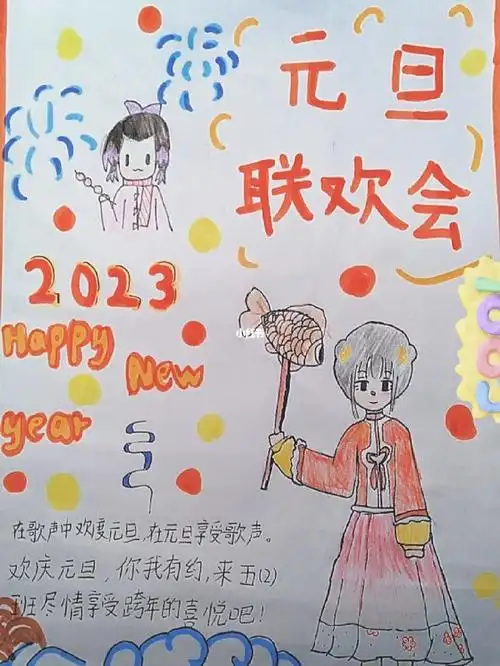 元旦
联欢会
2023
Happy
New
year
小红书
在歌声中欢度元旦,在元旦享受歌声。
欢庆元旦,你我有约,来五(2)
班尽情享受跨年的喜悦吧!